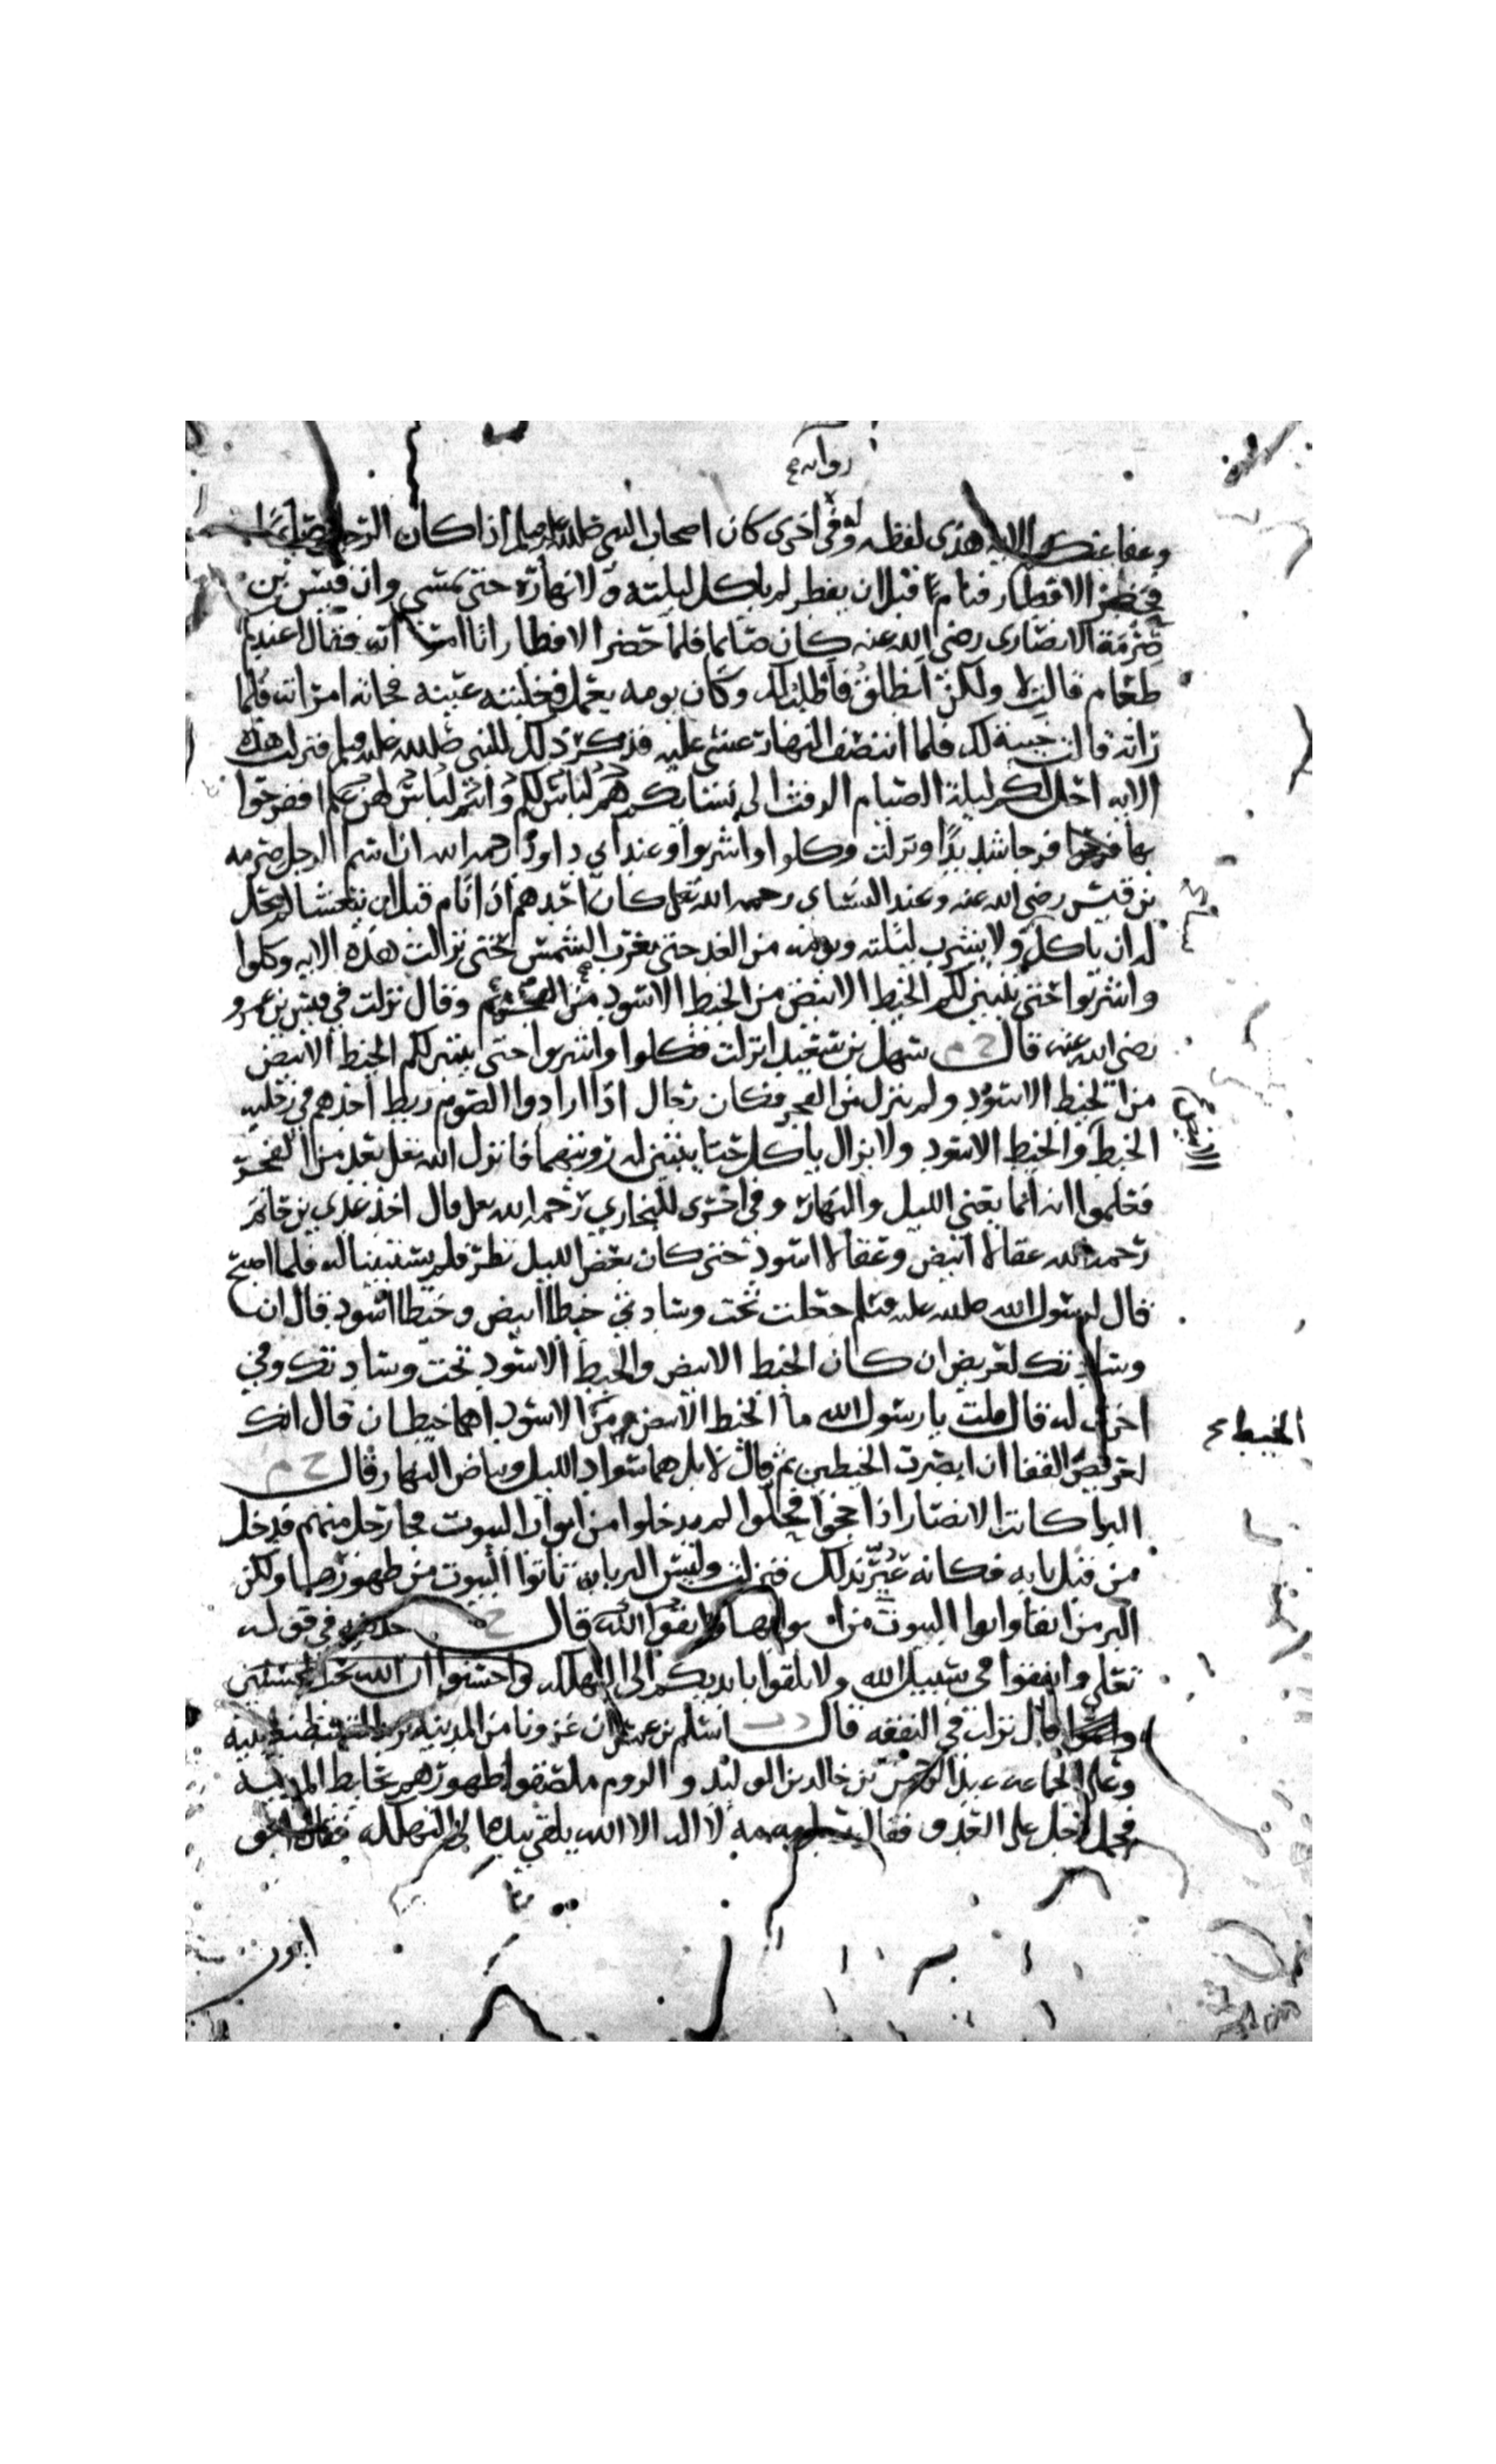 رواية
وعفا عنكم الاية هذى لفظه وله فى اخرى كان اصحاب النبي صلى الله عليه وسلم اذا كان الرجل صائما
فحضر الافطار فنام قبل ان يفطر لم ياكل ليلته ولا نهاره حتى يمسي وان قيس بن
صرمة الانصارى رضي الله عنه كان صائما فلما حضر الافطار اتا امراته فقال اعندك
طعام قالت لا ولكن انطلق فاطلب لك وكان يومه يعمل فغلبته عينه فجاته امراته فلما
راته قالت خيبة لك فلما انتصف النهار غشي عليه فذكر ذلك للنبي صلى الله عليه وسلم فنزلت هذه
الاية احل لكم ليلة الصيام الرفث الى نسائكم هن لباس لكم وانتم لباس لهن ففرحوا
بها فرحا شديدا ونزلت وكلوا واشربوا وعند ابي داود رحمه الله ان اسم الرجل صرمه
بن قيس رضي الله عنه وعند النساى رحمه الله تعلى كان احدهم اذا نام قبل ان يتعشا لم يحل
له ان ياكل ولا يشرب ليلته ويومه من الغد حتى تغرب الشمس حتى نزلت هذه الايه وكلوا
واشربوا حتى يتبين لكم الخيط الابيض من الخيط الاسود من الفجر وقال نزلت في قيس بن عمرو
رضي الله عنه قال خ م سهل بن سعد انزلت فكلوا واشربوا حتى يتبين لكم الخيط الابيض
من الخيط الاسود ولم ينزل من الفجر فكان رجال اذا ارادوا الصوم ربط احدهم في رجليه
الخيط والخيط الاسود ولا يزال ياكل حتا يتبين له رويتهما فانزل الله تعلى بعد من الفجر
فعلموا انه انما يعني الليل والنهار وفي اخرى للبخاري رحمه الله تعلى قال اخذ عدي بن حاتم
رحمه الله عقالا ابيض وعقالا اسود حتى كان بعض الليل نظر فلم يستبينا له فلما اصبح
قال لرسول الله صلى الله عليه وسلم جعلت تحت وسادتي خيطا ابيض وخيطا اسود قال ان
وسادتك لعريض ان كان الخيط الابيض والخيط الاسود تحت وسادتك وفي
اخرى له قال قلت يا رسول الله ما الخيط الابيض من الاسود اهما خيطان قال انك
الخيط
لعريض القفا ان ابصرت الخيطين ثم قال لا بل هما سواد الليل وبياض النهار وقال خ م
البرا كانت الانصار اذا حجوا فجاوا لم يدخلوا من ابواب البيوت فجا رجل منهم فدخل
من قبل بابه فكانه عير بذلك فنزلت وليس البر بان تاتوا البيوت من ظهورها ولكن
البر من اتقا واتوا البيوت من ابوابها واتقوا الله قال خ حذيفة في قوله
تعلى وانفقوا في سبيل الله ولا تلقوا بايديكم الى التهلكه واحسنوا ان الله يحب المحسنين
قال نزلت في النفقه قال د ت اسلم بن عمران غزونا من المدينه نريد القسطنطينيه
وعلى الجماعه عبد الرحمن بن خالد بن الوليد والروم ملصقوا ظهورهم بحايط المدينه
فحمل رجل على العدو فقال مه مه لا اله الا الله يلقي بيده الى التهلكه فقال
ابو